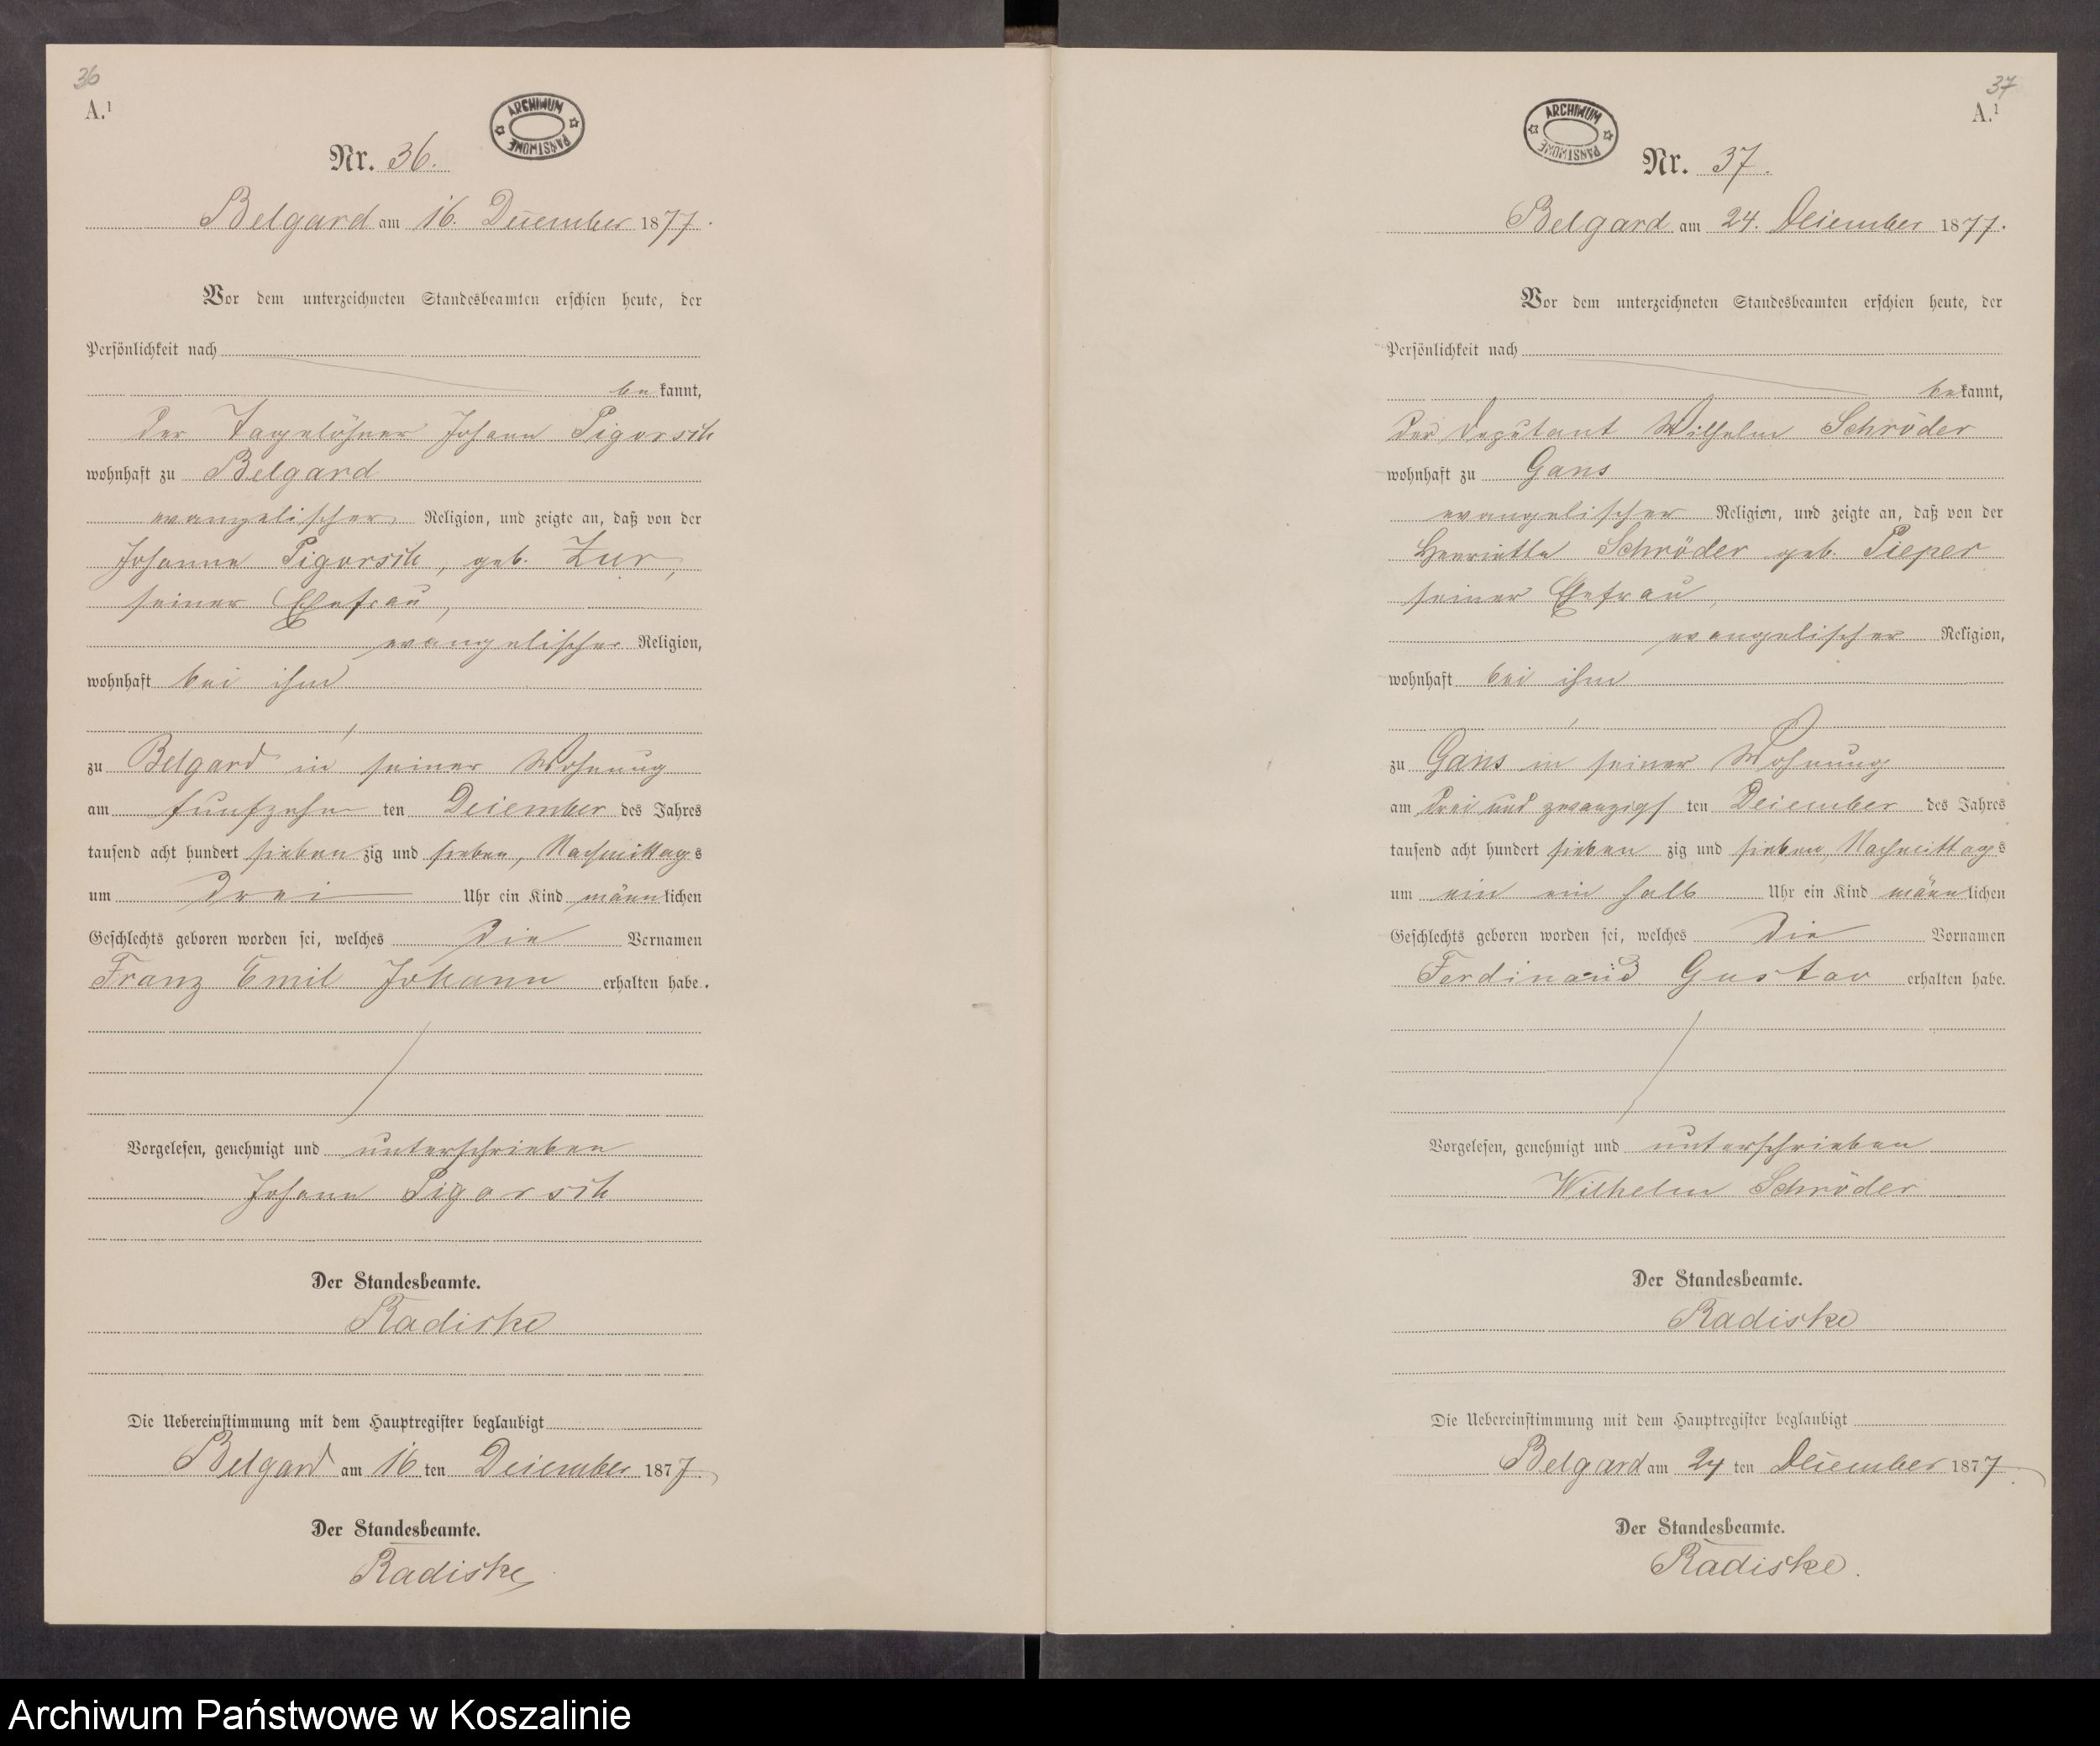 36
A.1
ARCHIWUM PAŃSTWOWE
Nr. 36.
Belgard am 16. December 1877.
Vor dem unterzeichneten Standesbeamten erschien heute, der
Persönlichkeit nach
be kannt,
der Tagelöhner Johann Pigorsch
wohnhaft zu Belgard
evangelischer Religion, und zeigte an, daß von der
Johanne Pigorsch, geb. Zur,
seiner Ehefrau,
evangelischer Religion,
wohnhaft bei ihm
zu Belgard in seiner Wohnung
am funfzehn ten December des Jahres
tausend acht hundert sieben zig und sieben, Nachmittags
um drei Uhr ein Kind männlichen
Geschlechts geboren worden sei, welches die Vornamen
Franz Emil Johann erhalten habe.
Vorgelesen, genehmigt und unterschrieben
Johann Pigorsch
Der Standesbeamte.
Radiske
Die Uebereinstimmung mit dem Hauptregister beglaubigt
Belgard am 16 ten December 1877
Der Standesbeamte.
Radiske
37
A.1
ARCHIWUM PAŃSTWOWE
Nr. 37.
Belgard am 24. December 1877.
Vor dem unterzeichneten Standesbeamten erschien heute, der
Persönlichkeit nach
bekannt,
der Deputant Wilhelm Schröder
wohnhaft zu Gans
evangelischer Religion, und zeigte an, daß von der
Henriette Schröder geb. Pieper
seiner Ehefrau,
evangelischer Religion,
wohnhaft bei ihm
zu Gans in seiner Wohnung
am drei und zwanzigst ten December des Jahres
tausend acht hundert sieben zig und sieben, Nachmittags
um ein ein halb Uhr ein Kind männlichen
Geschlechts geboren worden sei, welches die Vornamen
Ferdinand Gustav erhalten habe.
Vorgelesen, genehmigt und unterschrieben
Wilhelm Schröder
Der Standesbeamte.
Radiske
Die Uebereinstimmung mit dem Hauptregister beglaubigt
Belgard am 24 ten December 1877.
Der Standesbeamte.
Radiske.
Archiwum Państwowe w Koszalinie